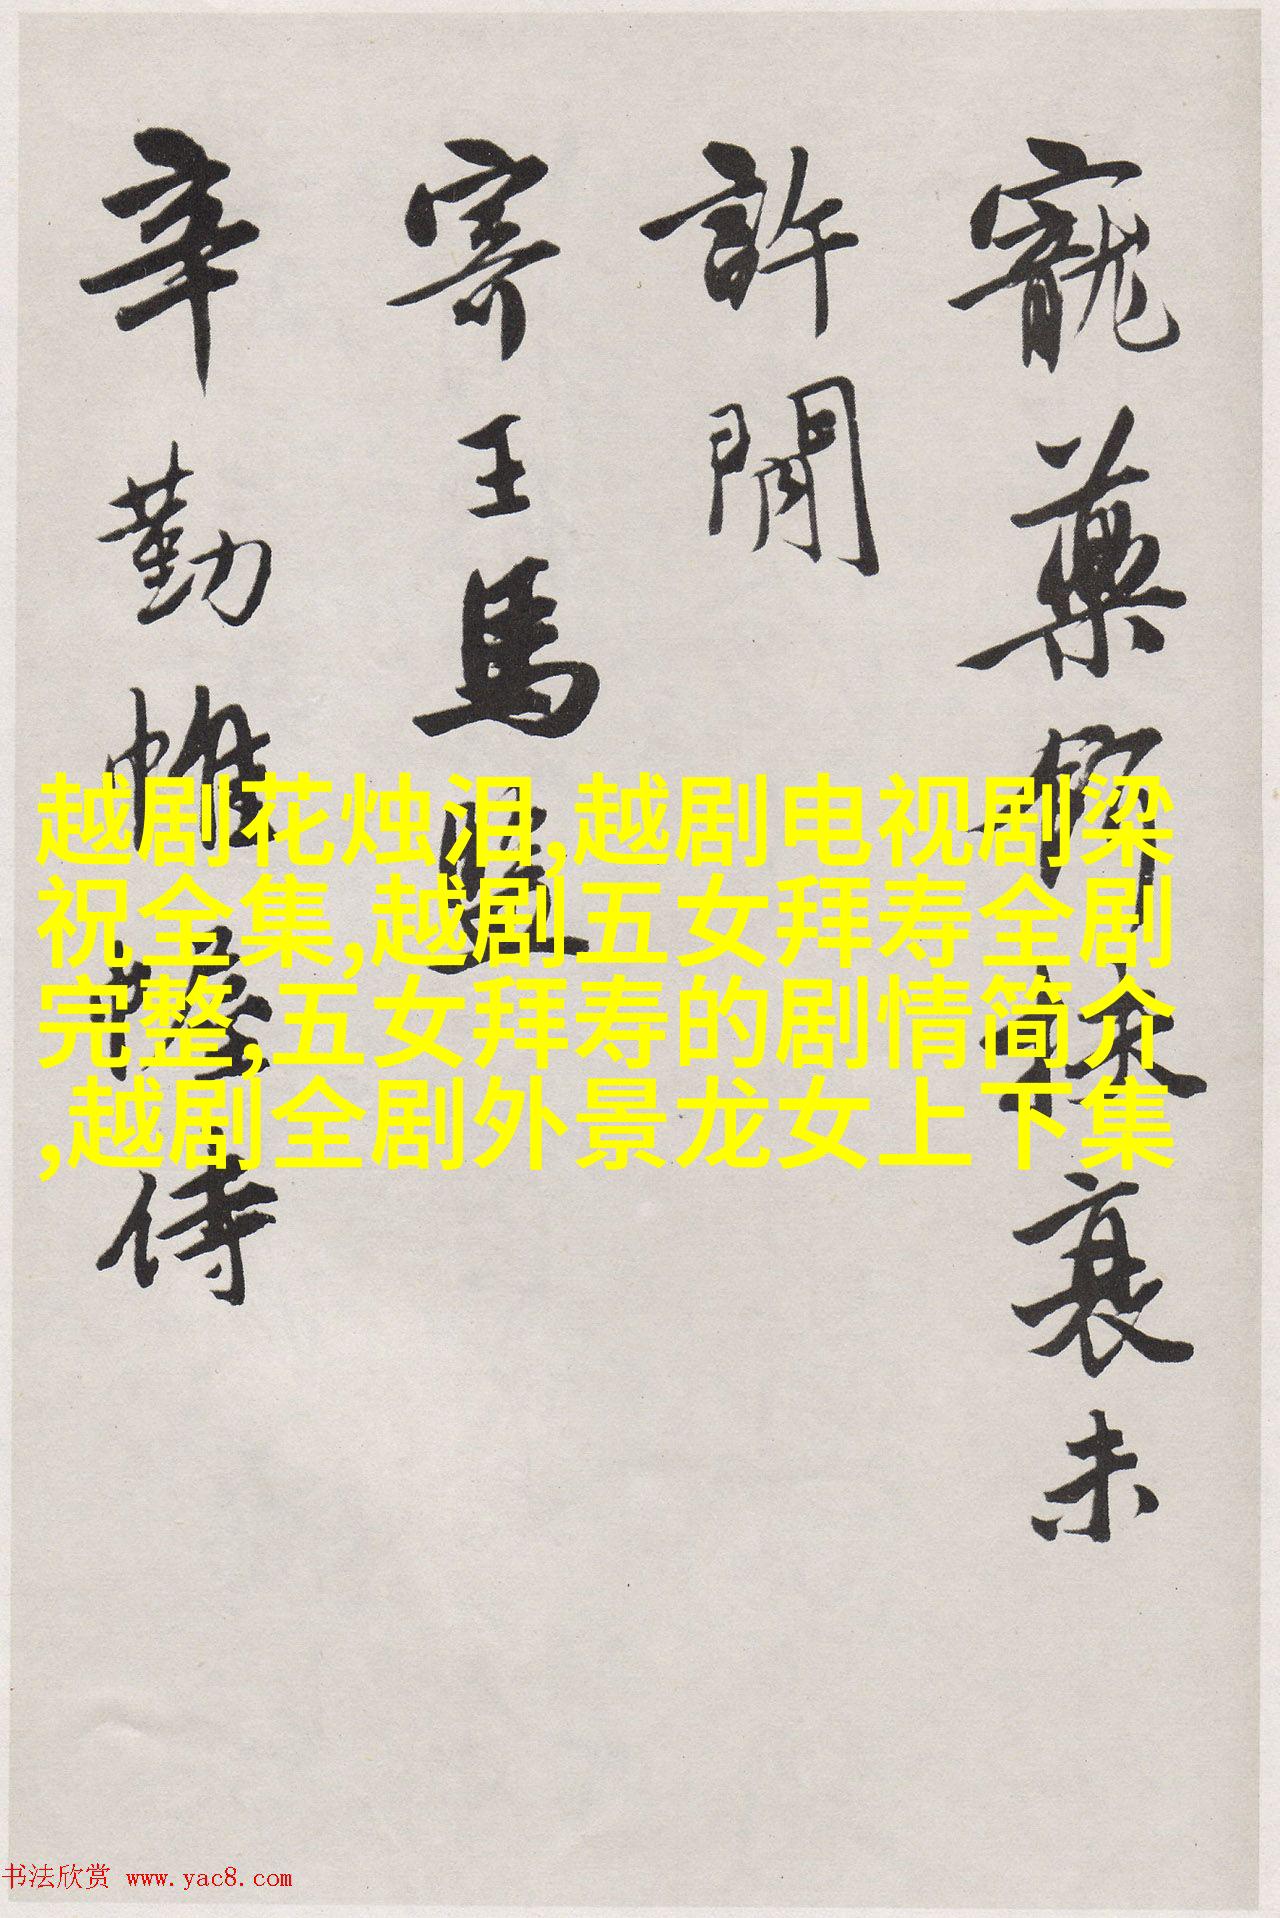 寵藥扶衰未
許閒
寄王馬
辛勤帷幄侍
越剧花烛泪,越剧电视剧梁
祝全集,越剧五女拜寿全剧
完整,五女拜寿的剧情简介
,越剧全剧外景龙女上下集
书法欣赏 www.yac8.com